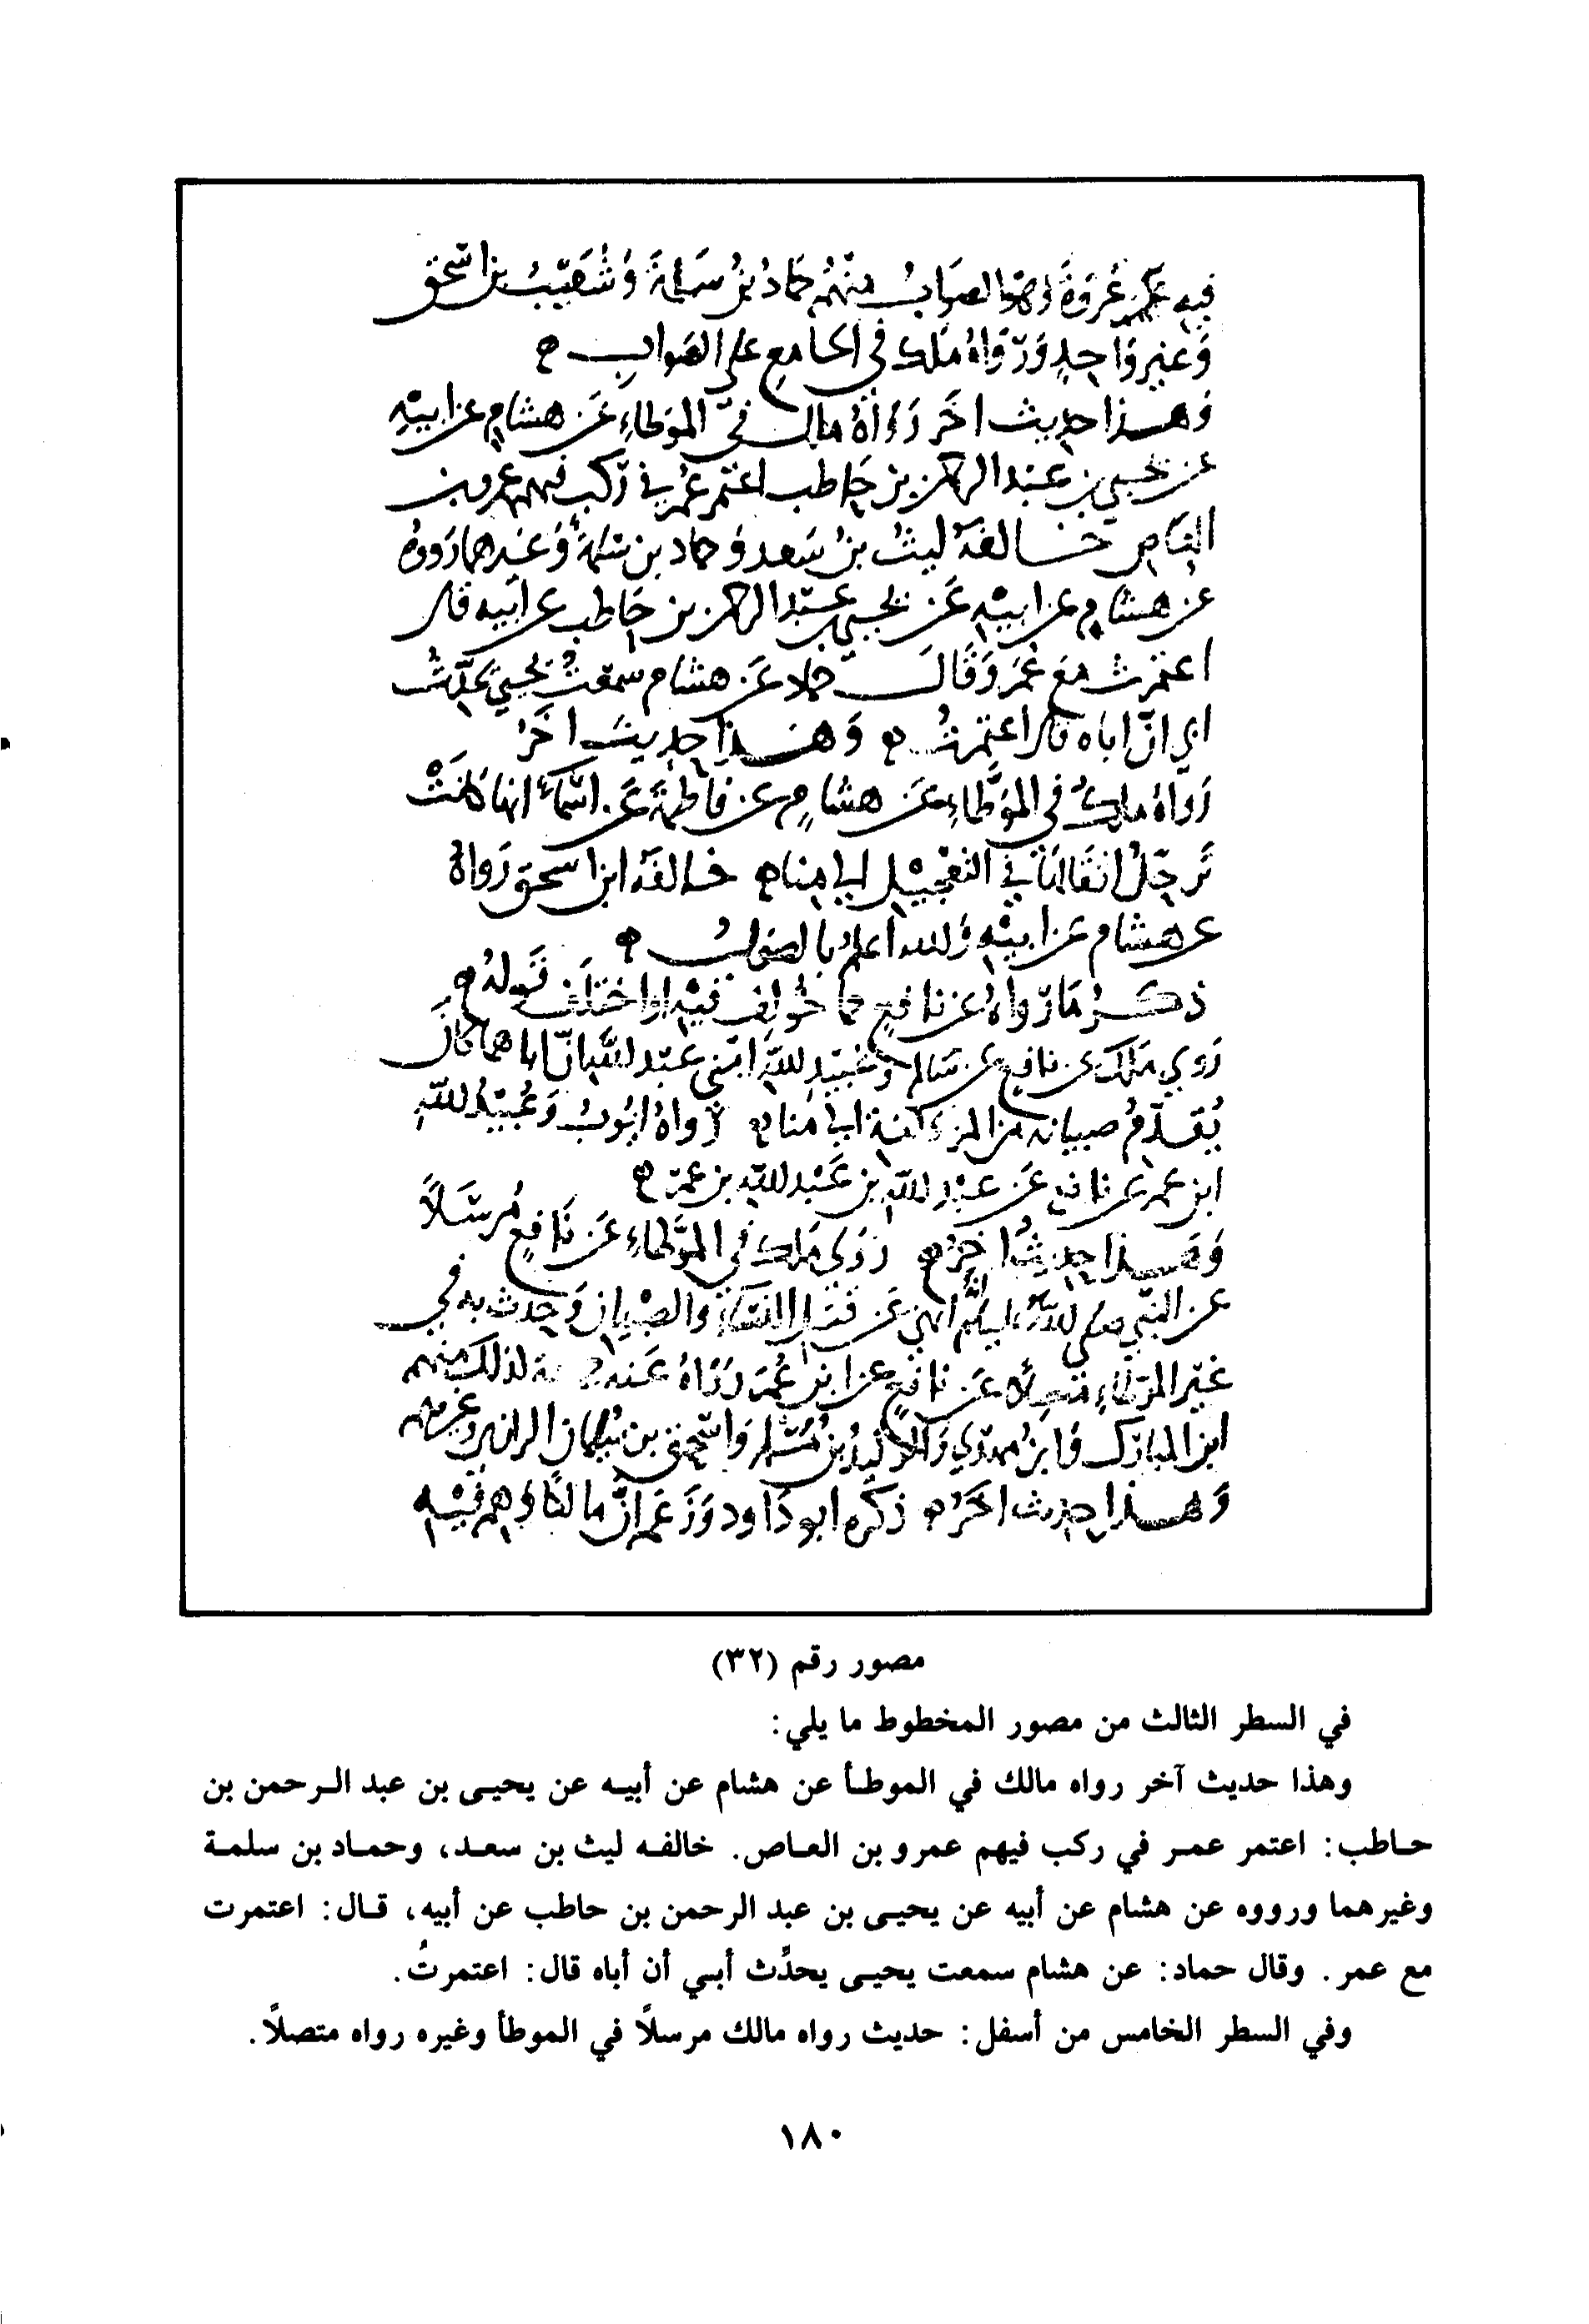 فيه عن عروة وهو الصواب منهم حماد بن سلمة وشعيب بن اسحق
وغير واحد ورواه ملك في الجامع على الصواب
وهذا حديث اخر رواه مالك في الموطاء عن هشام عن ابيه
عن يحيى بن عبد الرحمن بن حاطب اعتمر عمر في ركب فيهم عمرو بن
العاص خالفه ليث بن سعد وحماد بن سلمة وغيرهما رووه
عن هشام عن ابيه عن يحيى بن عبد الرحمن بن حاطب عن ابيه قال
اعتمرت مع عمر وقال حماد عن هشام سمعت يحيى يحدث
ابي ان اباه قال اعتمرت وهذا حديث اخر
رواه ملك في الموطاء عن هشام عن فاطمة عن اسماء انها كانت
في التعجيل الى منا خالفه ابن اسحق رواه
عن هشام عن ابيه والله اعلم بالصواب
ذكر ما رواه عن نافع مما خولف فيه او اختلف قوله
روى ملك عن نافع عن سالم وعبيد الله ابني عبد الله ان اباهما كان
يقدم صبيانه من المزدلفة الى منا رواه ايوب وعبيد الله
ابن عمر عن نافع عن عبد الله بن عبد الله بن عمر
وهذا حديث اخر روى ملك في الموطاء عن نافع مرسلا
عن النبي صلى الله عليه نهى عن قتل النساء والصبيان وحدث به في
غير الموطاء متصلا عن نافع عن ابن عمر رواه عنه كذلك منهم
ابن المبارك وابن مهدي والوليد بن مسلم واسحق بن سليمان الرازي وغيرهم
وهذا حديث اخر ذكره ابو داود وزعم ان مالكا وهم فيه
مصور رقم (٣٢)
في السطر الثالث من مصور المخطوط ما يلي:
وهذا حديث آخر رواه مالك في الموطأ عن هشام عن أبيه عن يحيى بن عبد الرحمن بن
حاطب: اعتمر عمر في ركب فيهم عمرو بن العاص. خالفه ليث بن سعد، وحماد بن سلمة
وغيرهما ورووه عن هشام عن أبيه عن يحيى بن عبد الرحمن بن حاطب عن أبيه، قال: اعتمرت
مع عمر. وقال حماد: عن هشام سمعت يحيى يحدِّث أبي أن أباه قال: اعتمرتُ.
وفي السطر الخامس من أسفل: حديث رواه مالك مرسلاً في الموطأ وغيره رواه متصلاً.
١٨٠